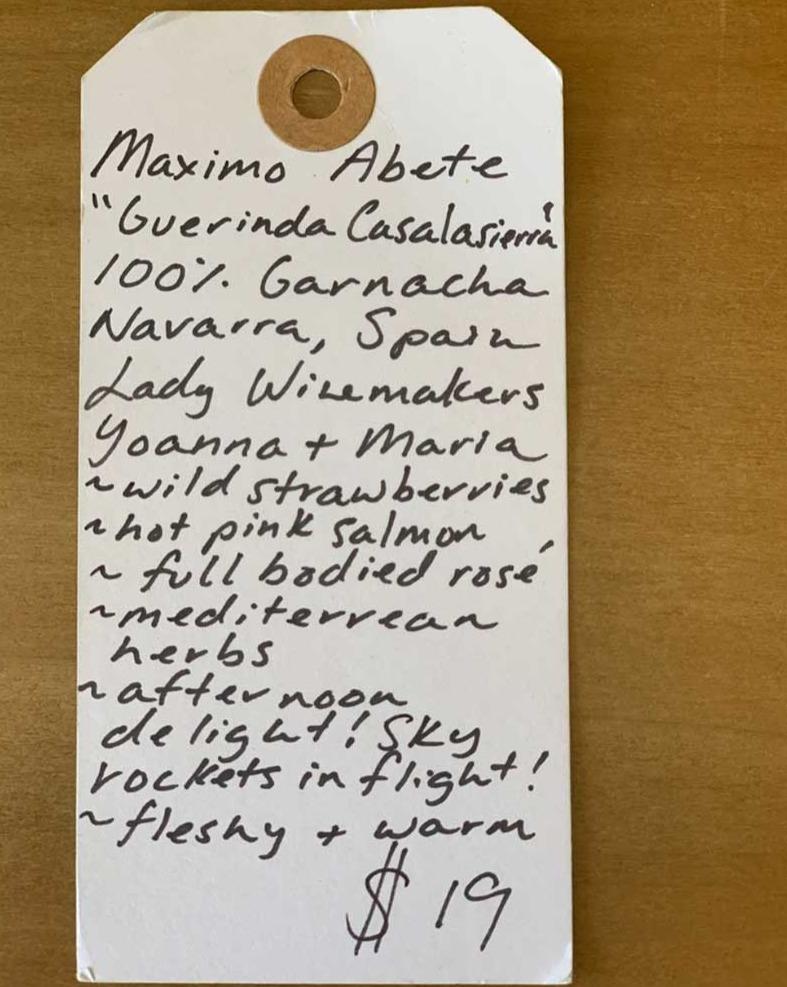 Maximo Abete
"Guerinda Casalasierra"
100% Garnacha
Navarra, Spain
Lady Winemakers
Yoanna + Maria
~wild strawberries
~hot pink salmon
~ full bodied rosé
~mediterrean
herbs
~afternoon
delight! Sky
rockets in flight!
~fleshy + warm
$ 19